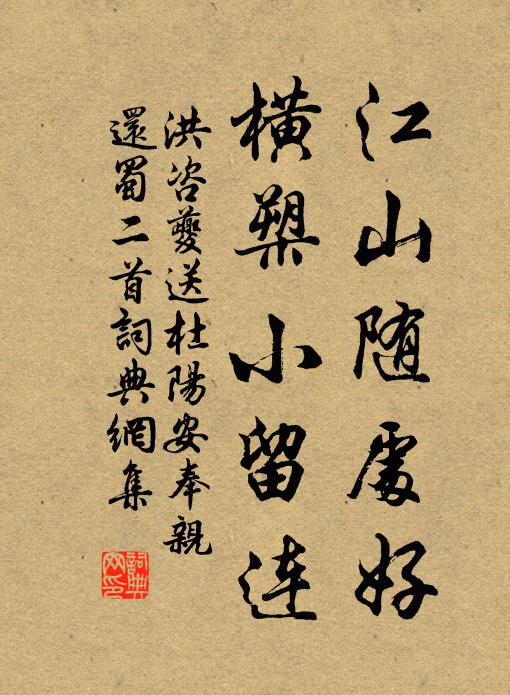 江山随處好
橫槊小留連
洪咨夔送杜陽安奉親
還蜀二首詞典網集
詞典
网印